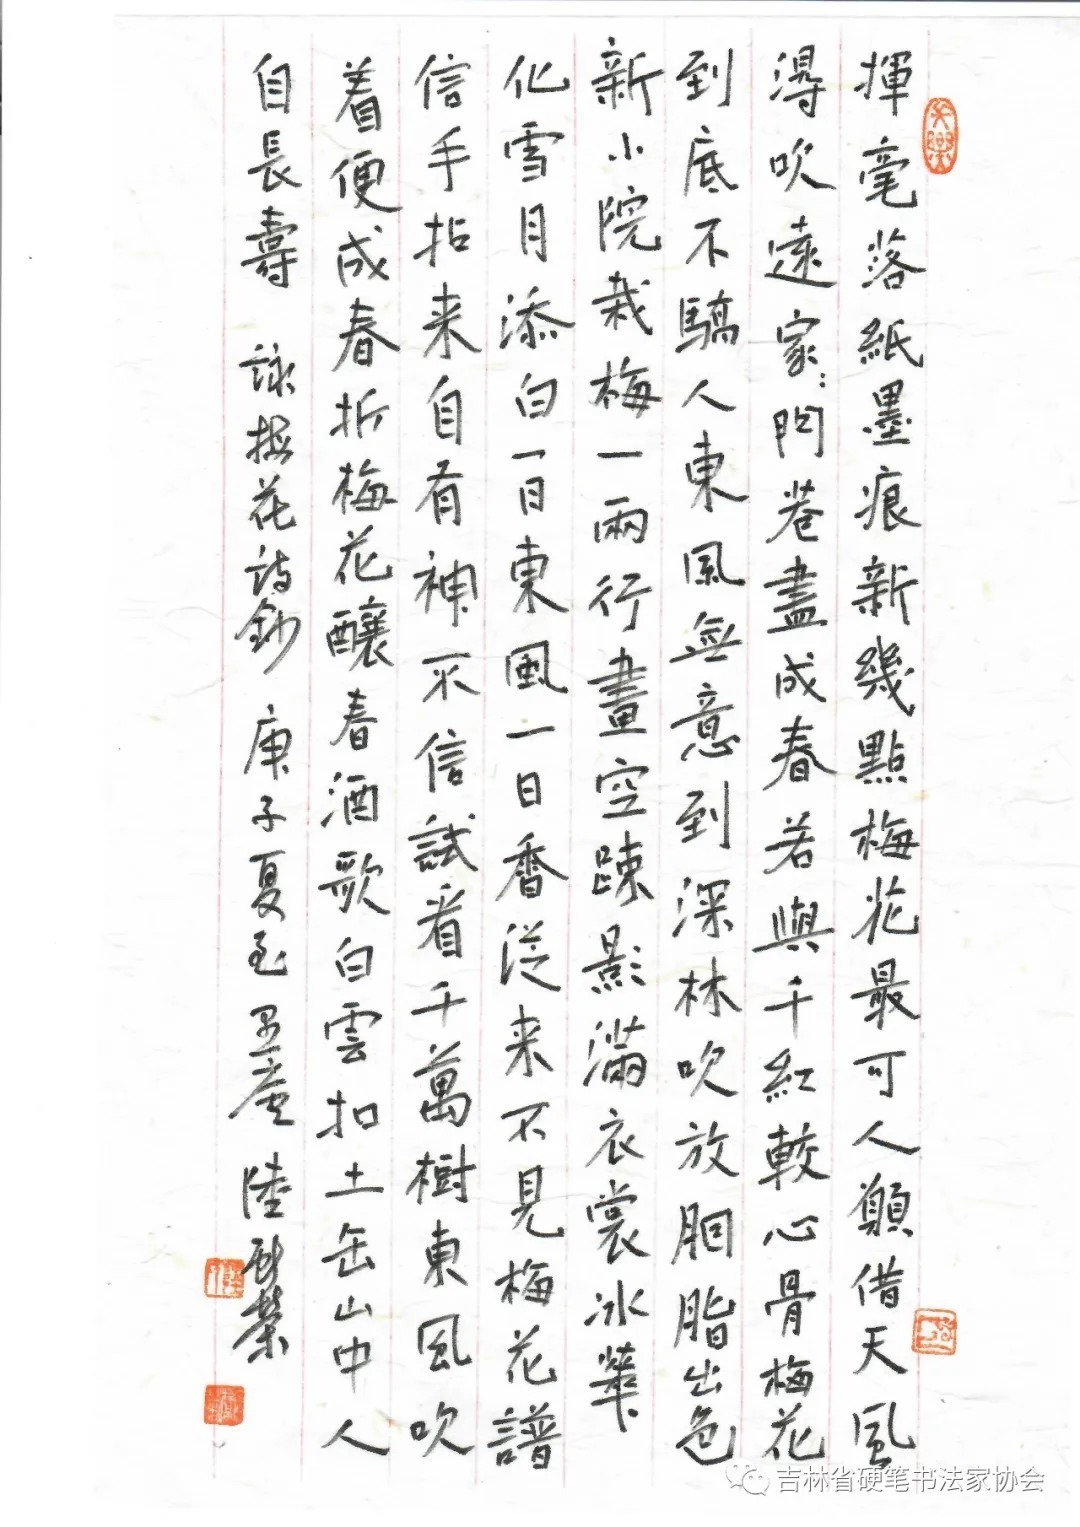 揮毫落紙墨痕新幾點梅花最可人願借天風
得吹遠家:門巷盡成春若與千紅較心骨梅花
到底不驕人東風無意到深林吹放胭脂出色
新小院栽梅一兩行畫空疎影滿衣裳冰華
化雪月添白一日東風一日香從来不見梅花譜
信手拈来自有神不信試看千萬樹東風吹
着便成春折梅花釀春酒歌白雲扣土缶山中人
自長壽 詠梅花詩鈔 庚子夏至 陸
吉林省硬笔书法家协会